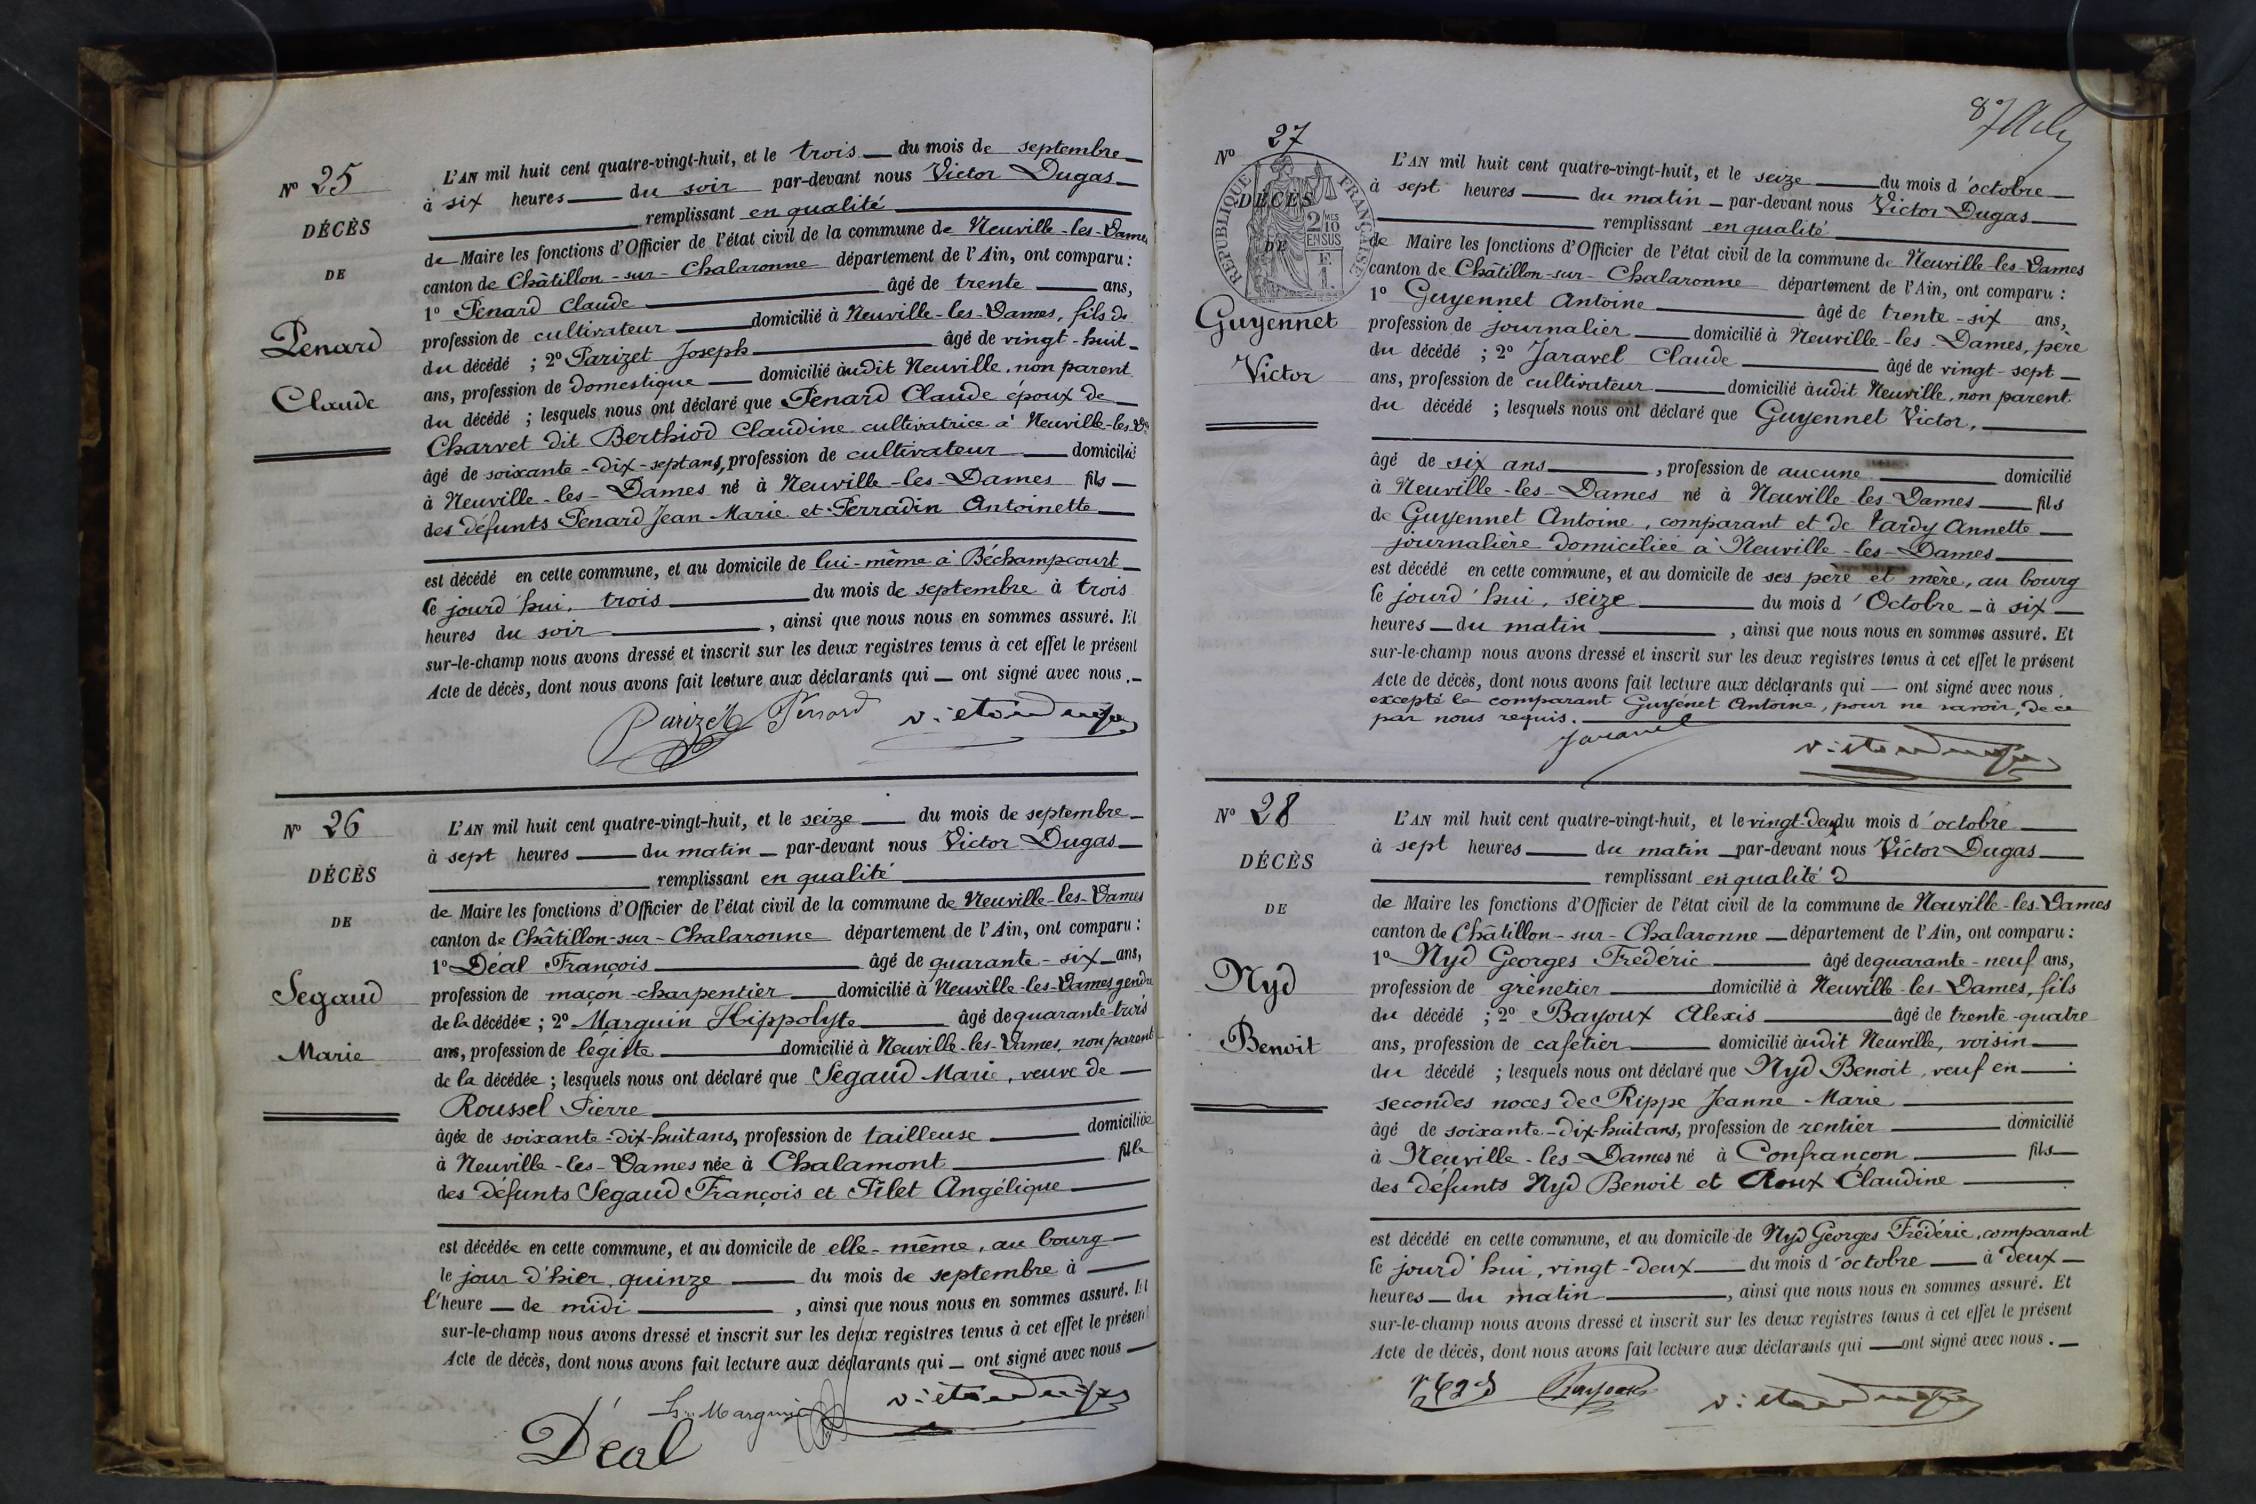 Nº 25
DÉCÈS
DE
Penard
Claude
L'AN mil huit cent quatre-vingt-huit, et le trois du mois de septembre
à six heures du soir par-devant nous Victor Dugas
remplissant en qualité
de Maire les fonctions d'Officier de l'état civil de la commune de Neuville-les-Dames
canton de Châtillon-sur-Chalaronne département de l'Ain, ont comparu :
1º Penard Claude âgé de trente ans,
profession de cultivateur domicilié à Neuville-les-Dames, fils du
du décédé ; 2º Parizet Joseph âgé de vingt-huit
ans, profession de domestique domicilié àudit Neuville, non parent
du décédé ; lesquels nous ont déclaré que Penard Claude époux de
Charvet dit Berthiod Claudine cultivatrice à Neuville-les-D
âgé de soixante-dix-sept ans, profession de cultivateur domicilié
à Neuville-les-Dames né à Neuville-les-Dames fils
des défunts Penard Jean-Marie et Perradin Antoinette
est décédé en cette commune, et au domicile de lui-même à Béchampcourt
le jourd'hui, trois du mois de septembre à trois
heures du soir , ainsi que nous nous en sommes assuré. Et
sur-le-champ nous avons dressé et inscrit sur les deux registres tenus à cet effet le présent
Acte de décès, dont nous avons fait lecture aux déclarants qui ont signé avec nous.
Parizet Penard Victor Dugas
Nº 26
DÉCÈS
DE
Segaud
Marie
L'AN mil huit cent quatre-vingt-huit, et le seize du mois de septembre
à sept heures du matin par-devant nous Victor Dugas
remplissant en qualité
de Maire les fonctions d'Officier de l'état civil de la commune de Neuville-les-Dames
canton de Châtillon-sur-Chalaronne département de l'Ain, ont comparu :
1º Déal François âgé de quarante-six ans,
profession de maçon-charpentier domicilié à Neuville-les-Dames gendre
de la décédée ; 2º Marguin Hippolyte âgé de quarante-trois
ans, profession de légiste domicilié à Neuville-les-Dames, non parent
de la décédée ; lesquels nous ont déclaré que Segaud Marie, veuve de
Roussel Pierre
âgée de soixante-dix-huit ans, profession de tailleuse domiciliée
à Neuville-les-Dames née à Chalamont fille
des défunts Segaud François et Pilet Angélique
est décédée en cette commune, et au domicile de elle-même, au bourg
le jour d'hier, quinze du mois de septembre à
l'heure de midi , ainsi que nous nous en sommes assuré. Et
sur-le-champ nous avons dressé et inscrit sur les deux registres tenus à cet effet le présent
Acte de décès, dont nous avons fait lecture aux déclarants qui ont signé avec nous
Marguin Victor Dugas
Déal
87
Nº 27
RÉPUBLIQUE FRANÇAISE
2 MES
10
EN SUS
F
1.
DÉCÈS
DE
Guyennet
Victor
L'AN mil huit cent quatre-vingt-huit, et le seize du mois d'octobre
à sept heures du matin par-devant nous Victor Dugas
remplissant en qualité
de Maire les fonctions d'Officier de l'état civil de la commune de Neuville-les-Dames
canton de Châtillon-sur-Chalaronne département de l'Ain, ont comparu :
1º Guyennet Antoine âgé de trente-six ans,
profession de journalier domicilié à Neuville-les-Dames, père
du décédé ; 2º Jaravel Claude âgé de vingt-sept
ans, profession de cultivateur domicilié àudit Neuville, non parent
du décédé ; lesquels nous ont déclaré que Guyennet Victor,
âgé de six ans , profession de aucune domicilié
à Neuville-les-Dames né à Neuville-les-Dames fils
de Guyennet Antoine, comparant et de Tardy Annette
journalière domiciliée à Neuville-les-Dames
est décédé en cette commune, et au domicile de ses père et mère, au bourg
le jourd'hui, seize du mois d'Octobre à six
heures du matin , ainsi que nous nous en sommes assuré. Et
sur-le-champ nous avons dressé et inscrit sur les deux registres tenus à cet effet le présent
Acte de décès, dont nous avons fait lecture aux déclarants qui ont signé avec nous,
excepté le comparant Guyénet Antoine, pour ne savoir, de ce
par nous requis.
Jaravel Victor Dugas
Nº 28
DÉCÈS
DE
Nyd
Benoit
L'AN mil huit cent quatre-vingt-huit, et le vingt-deux du mois d'octobre
à sept heures du matin par-devant nous Victor Dugas
remplissant en qualité
de Maire les fonctions d'Officier de l'état civil de la commune de Neuville-les-Dames
canton de Châtillon-sur-Chalaronne département de l'Ain, ont comparu :
1º Nyd Georges Frédéric âgé de quarante-neuf ans,
profession de grènetier domicilié à Neuville-les-Dames, fils
du décédé ; 2º Bayoux Alexis âgé de trente-quatre
ans, profession de cafetier domicilié àudit Neuville, voisin
du décédé ; lesquels nous ont déclaré que Nyd Benoit, veuf en
secondes noces de Rippe Jeanne-Marie
âgé de soixante-dix-huit ans, profession de rentier domicilié
à Neuville-les-Dames né à Confrançon fils
des défunts Nyd Benoit et Roux Claudine
est décédé en cette commune, et au domicile de Nyd Georges Frédéric, comparant
le jourd'hui, vingt-deux du mois d'octobre à deux
heures du matin , ainsi que nous nous en sommes assuré. Et
sur-le-champ nous avons dressé et inscrit sur les deux registres tenus à cet effet le présent
Acte de décès, dont nous avons fait lecture aux déclarants qui ont signé avec nous.
Bayoux Victor Dugas